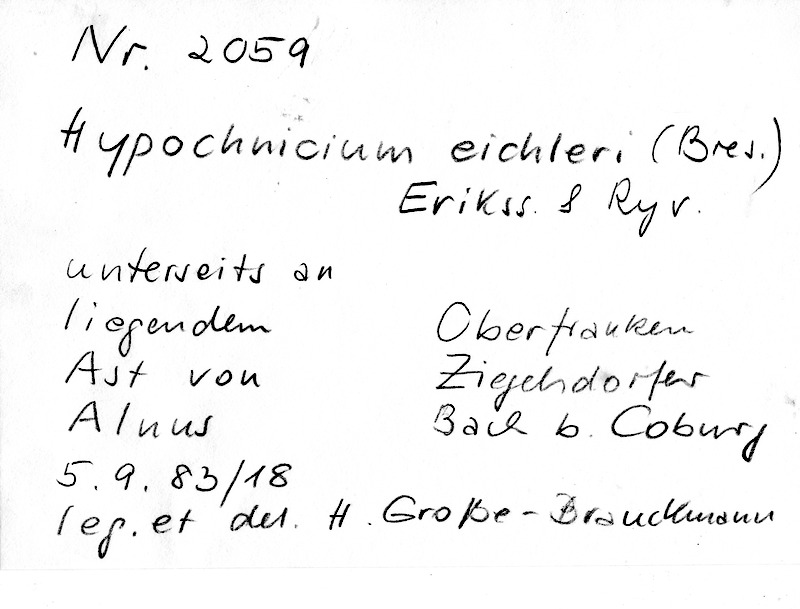 Nr. 2059
Hypochnicium eichleri (Bres.)
Erikss. & Ryv.
unterseits an
liegendem
Ast von
Alnus
5.9.83/18
Oberfranken
Ziegelsdorfer
Bach b. Coburg
leg. et det. H. Große-Brauckmann